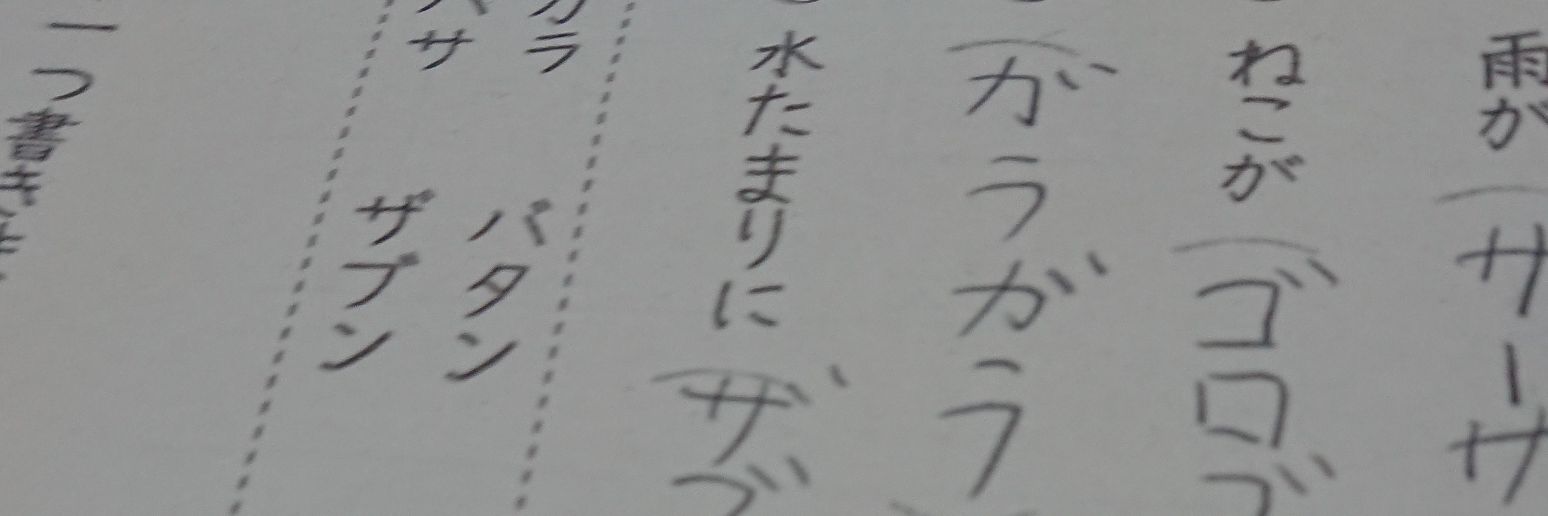 雨が（サーサ
ねこが（ゴロゴ
（ガラガラ
水たまりに（ザブ
ラ　バタン
サ　ザブン
一つ書き